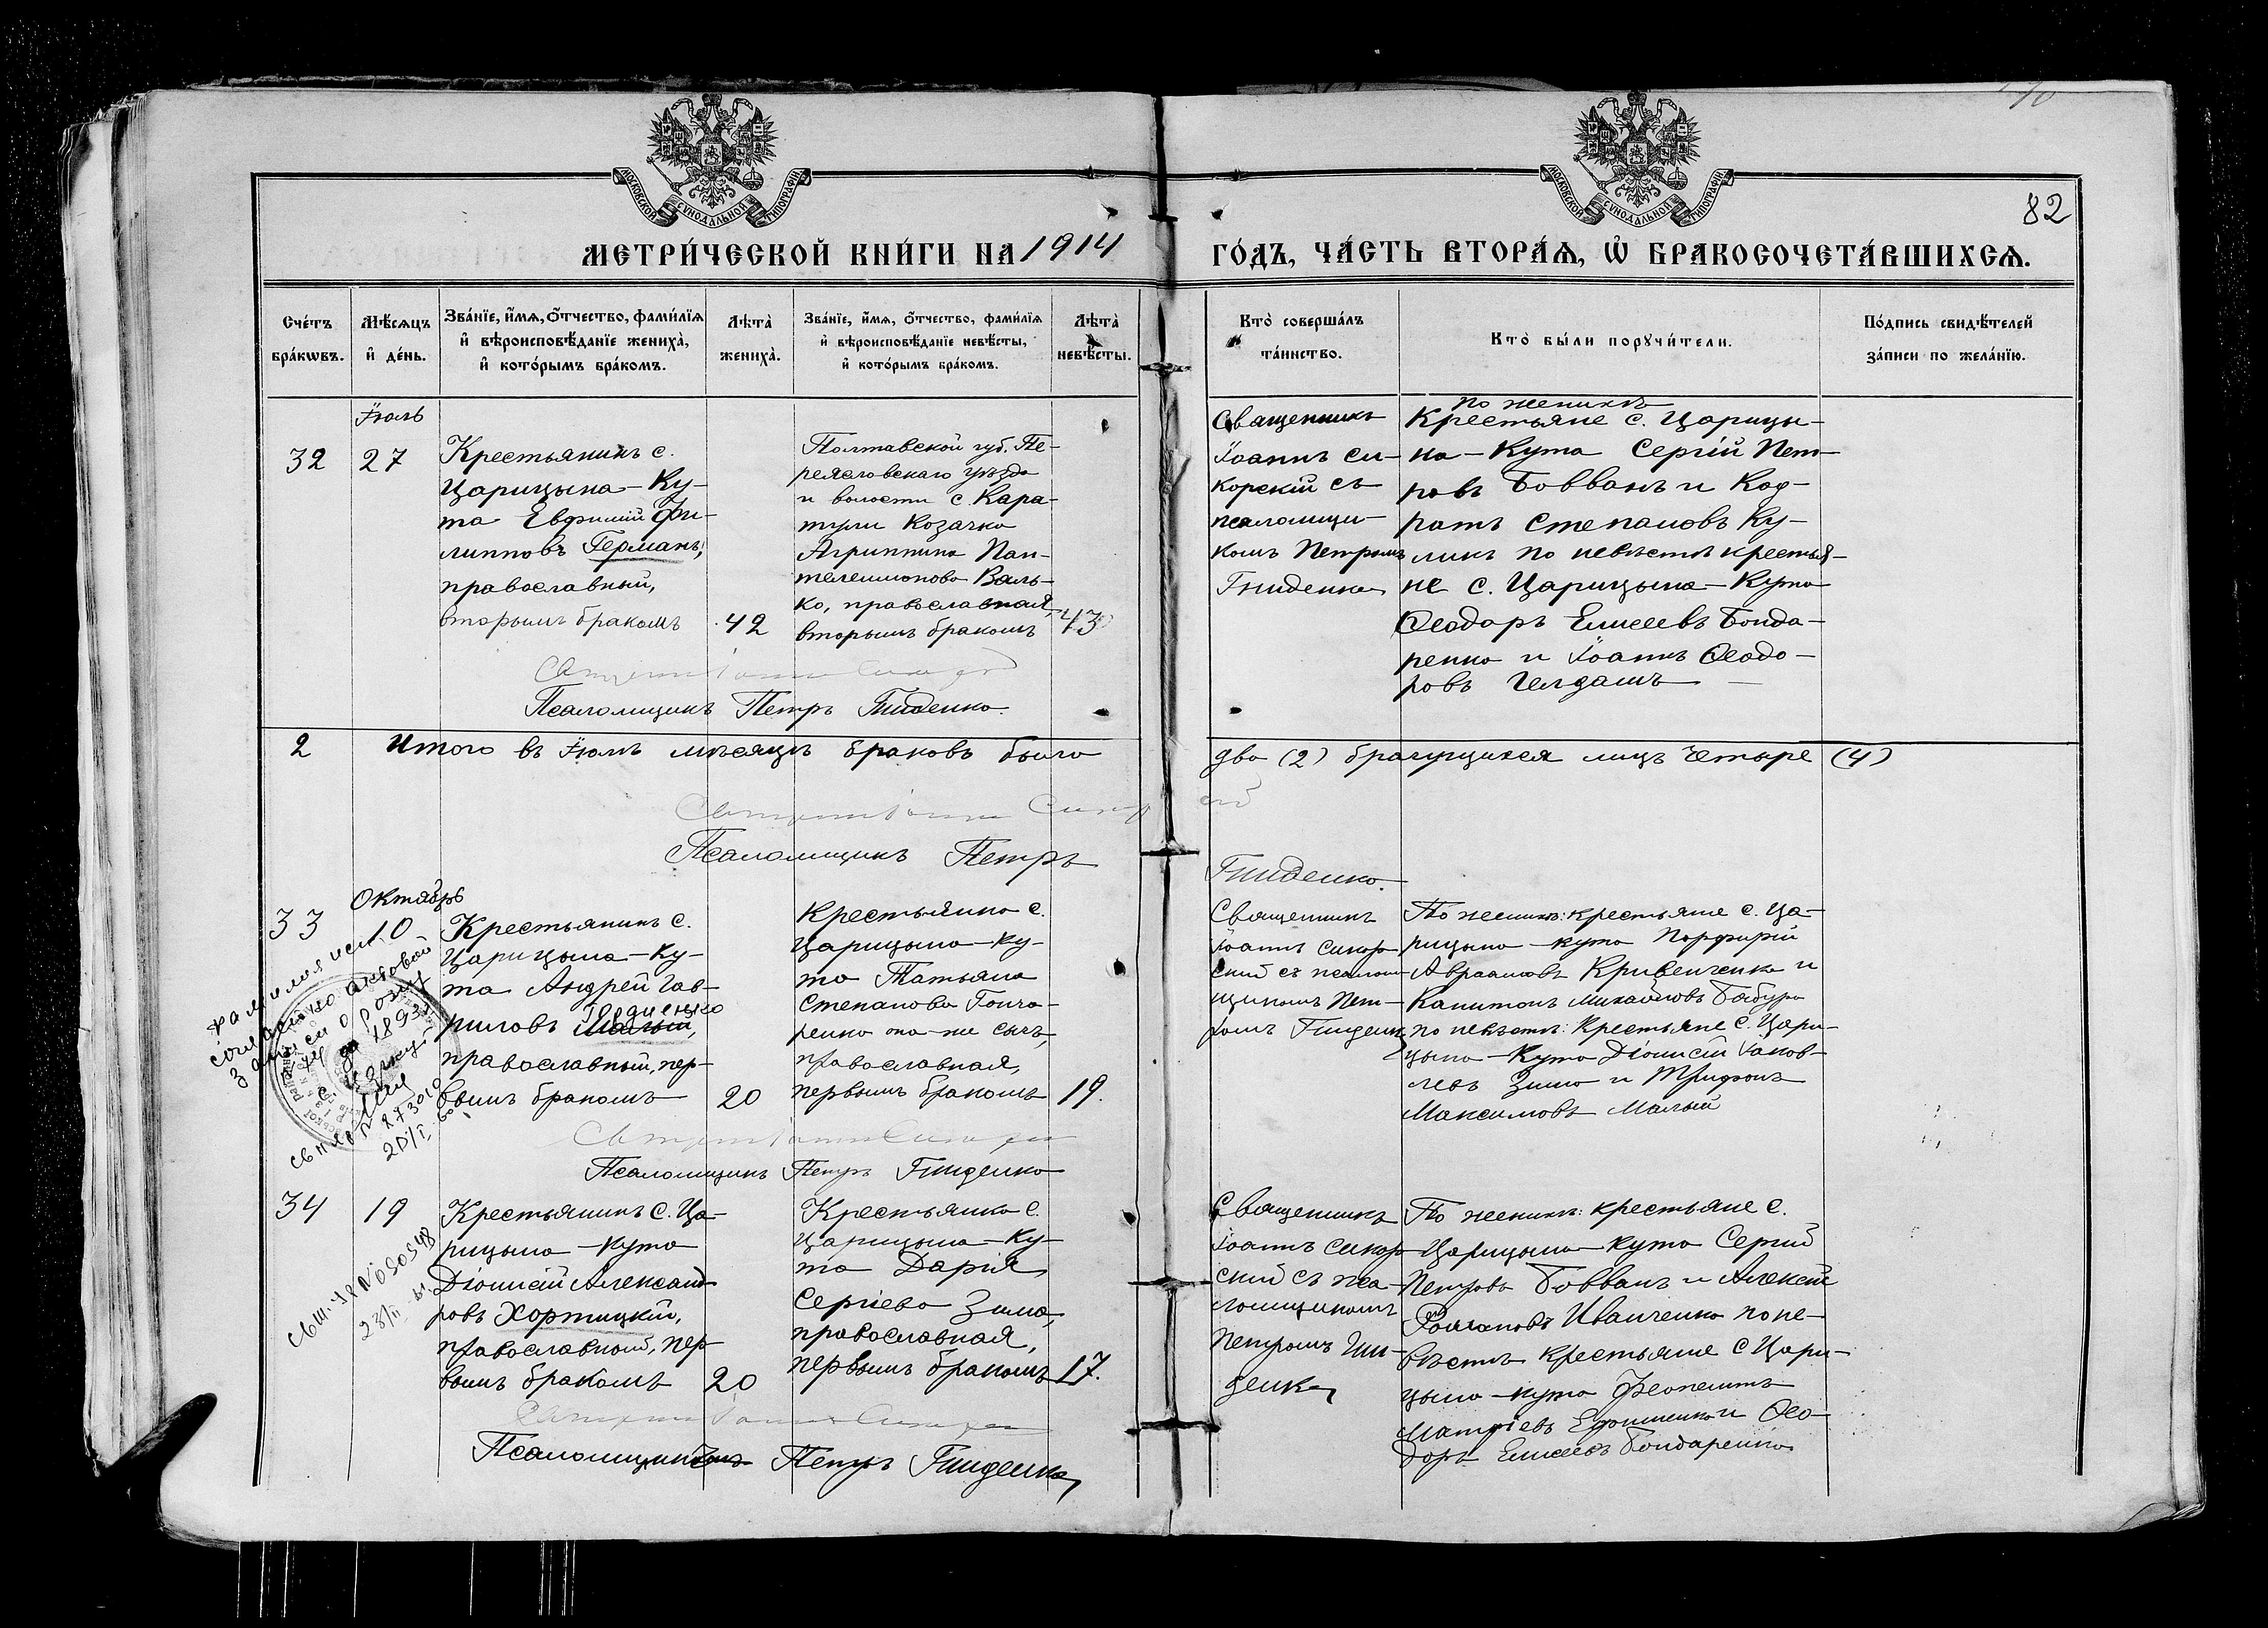 82
МОСКОВСКОЙ СУНОДАЛЬНОЙ ТИПОГРАФІИ
МОСКОВСКОЙ СУНОДАЛЬНОЙ ТИПОГРАФІИ
МЕТРИ́ЧЕСКОЙ КНИ́ГИ НА 1914
ГО́ДЪ, ЧА́СТЬ ВТОРА́Ѧ, Ѡ҆ БРАКОСОЧЕТА́ВШИХСѦ.
Сче́тъ бра́кѡвъ.
Мѣ́сѧцъ и҆ де́нь.
Зва́нїе, и҆́мѧ, ѻ҆́тчество, фами́лїѧ и҆ вѣроисповѣ́данїе жениха̀, и҆ кото́рымъ бра́комъ.
Лѣта̀ жениха̀.
Зва́нїе, и҆́мѧ, ѻ҆́тчество, фами́лїѧ и҆ вѣроисповѣ́данїе невѣ́сты, и҆ кото́рымъ бра́комъ.
Лѣта̀ невѣ́сты.
Кто̀ соверша́лъ та́инство.
Кто̀ бы́ли порꙋчи́тели.
По́дпись свидѣ́телей за́писи по жела́нїю.
Іюль
32
27
Крестьянинъ с.
Царицына-Ку-
та Евфимій Фи-
липповъ Германъ,
православный,
вторымъ бракомъ
42
Полтавской губ. Пе-
реясловскаго уѣзда
и волости с. Кара-
тули Козачка
Агриппина Пан-
телеимонова Валь-
ко, православная,
вторымъ бракомъ
43
Священникъ
Іоаннъ Си-
корскій съ
псаломщи-
комъ Петромъ
Гниденко
По женихѣ
Крестьяне с. Царицы-
на-Кута Сергій Пет-
ровъ Бовванъ и Код-
ратъ Степановъ Ку-
ликъ по невѣстѣ крестья-
не с. Царицына-Кута
Ѳеодоръ Елисеевъ Бонда-
ренко и Іоаннъ Ѳеодо-
ровъ Челдашъ
Псаломщикъ Петръ Гниденко.
2
Итого въ Іюлѣ мѣсяцѣ браковъ было
два (2) брачущихся лицъ четыре (4)
Псаломщикъ Петръ
Гниденко.
Октябрь
33
10
Крестьянинъ с.
Царицына-Ку-
та Андрей Гав-
риловъ Малый,
Гордиенко
православный, пер-
вымъ бракомъ
20
Крестьянка с.
Царицына-Ку-
та Татьяна
Степанова Гонча-
ренко она-же Сычъ,
православная,
первымъ бракомъ
19.
Священникъ
Іоаннъ Сикор-
скій съ псалом-
щикомъ Пет-
ромъ Гниденко
По женихѣ: крестьяне с. Ца-
рицына-Кута Порфирій
Авраамовъ Кривенченко и
Капитонъ Михайловъ Бабура
по невѣстѣ: Крестьяне с. Цари-
цына-Кута Діонисій Іаков-
левъ Зима и Трифонъ
Максимовъ Малый
фамилия испр.
согласно актовой
записи о рожд.
Псаломщикъ Петръ Гниденко
34
19
Крестьянинъ с. Ца-
рицына-Кута
Діонисій Александ-
ровъ Хортицкій,
православный, пер-
вымъ бракомъ
20
Крестьянка с.
Царицына-Ку-
та Дарія
Сергіева Зима,
православная,
первымъ бракомъ
17.
Священникъ
Іоаннъ Сикор-
скій съ пса-
ломщикомъ
Петромъ Гни-
денко
По женихѣ: крестьяне с.
Царицына-Кута Сергій
Петровъ Бовванъ и Алексій
Романовъ Иванченко по не-
вѣстѣ крестьяне с Цари-
цына-Кута Ѳеопемптъ
Ефименко и Ѳео-
доръ Елисеевъ Бондаренко
Псаломщикъ Петръ Гниденко